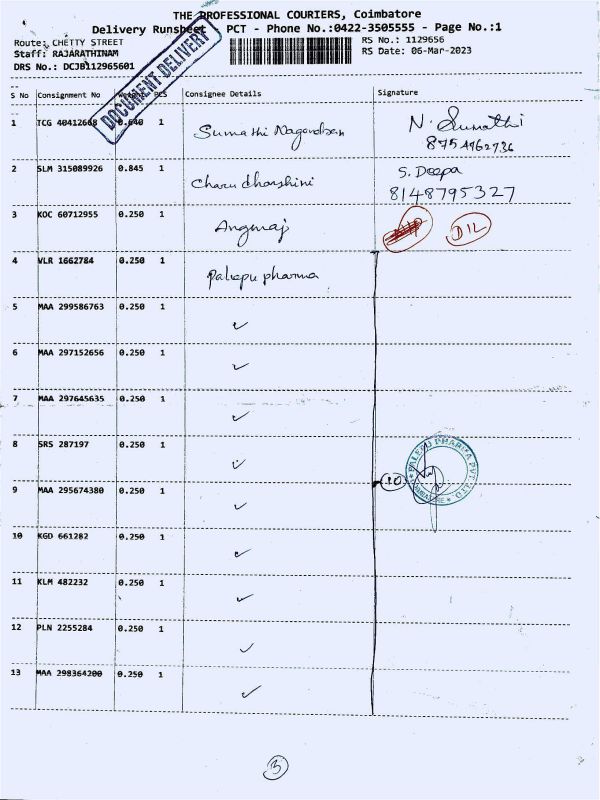 THE PROFESSIONAL COURIERS, Coimbatore
Delivery Runsheet PCT - Phone No.:0422-3505555 - Page No.:1
Route: CHETTY STREET
RS No.: 1129656
Staff: RAJARATHINAM
RS Date: 06-Mar-2023
DRS No.: DCJB112965601
DOCUMENT DELIVERY
S No Consignment No Weight PCS Consignee Details Signature
1 TCG 40412668 0.640 1 Sumathi N. Sumathi
2 SLM 315089926 0.845 1 Charu dharshini S. Deepa
8148795327
3 KOC 60712955 0.250 1 DIL
4 VLR 1662784 0.250 1 Palepu pharma
5 MAA 299586763 0.250 1 ✓
6 MAA 297152656 0.250 1 ✓
7 MAA 297645635 0.250 1 ✓
8 SRS 287197 0.250 1 ✓
PALEPU PHARMA PVT LTD
9 MAA 295674380 0.250 1 ✓ 10
10 KGD 661282 0.250 1 ✓
11 KLM 482232 0.250 1 ✓
12 PLN 2255284 0.250 1 ✓
13 MAA 298364200 0.250 1 ✓
3